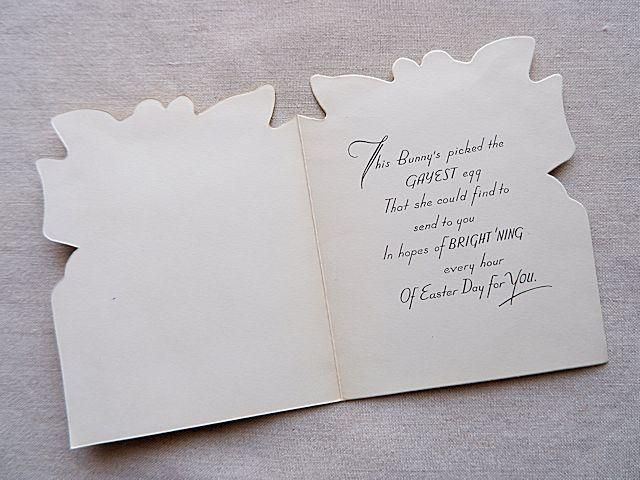 This Bunny's picked the
GAYEST egg
That she could find to
send to you
In hopes of BRIGHT'NING
every hour
Of Easter Day for YOU.